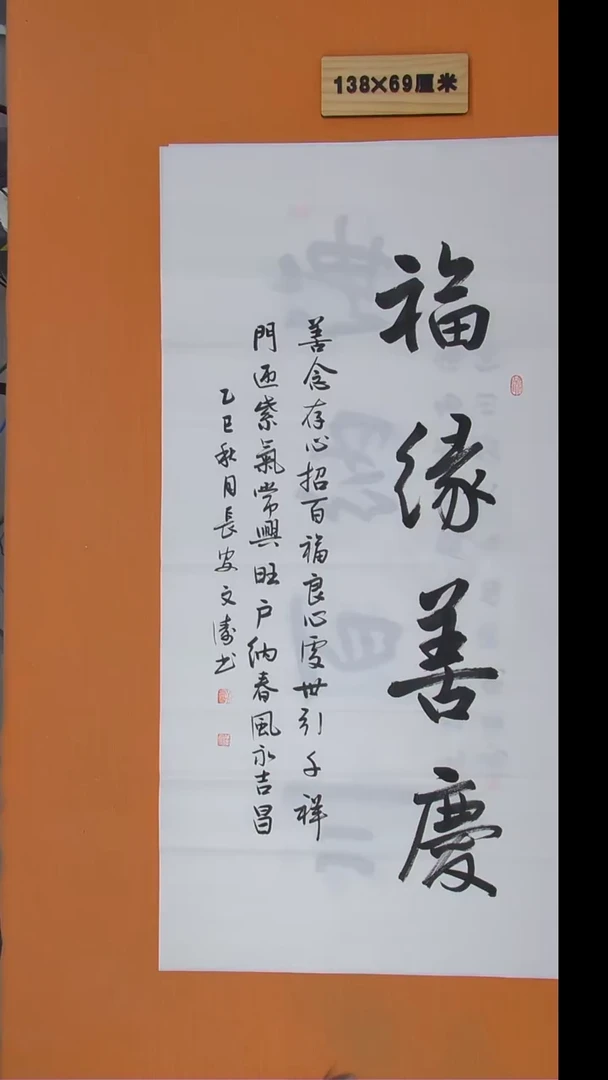 138×69厘米
福緣善慶
善念存心招百福良心處世引千祥
門迎紫氣常興旺户納春風永吉昌
乙巳秋月長安文濤书